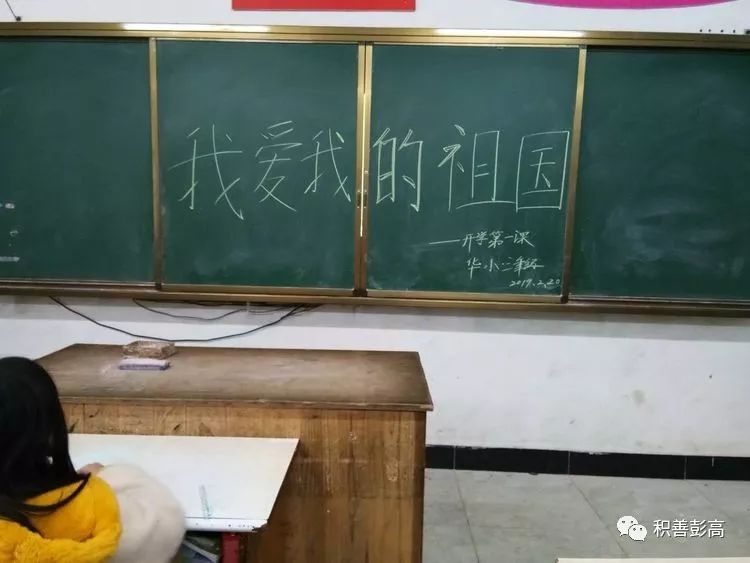 我爱我的祖国
——开学第一课
华小三年级
2019.2.20
积善彭高